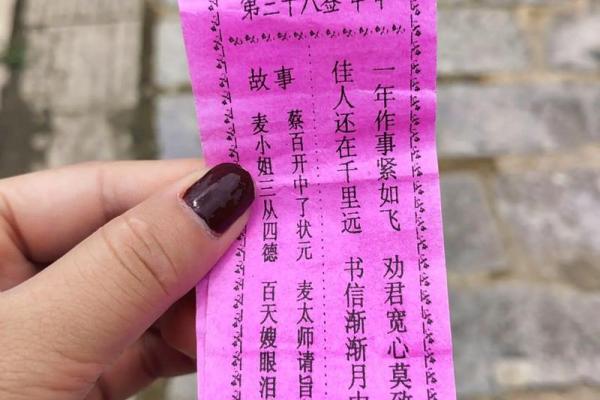 第三十八签
一年作事紧如飞 劝君宽心莫
佳人还在千里远 书信渐渐月
故事
蔡百开中了状元 麦太师请旨
麦小姐三从四德 百天嫂眼泪